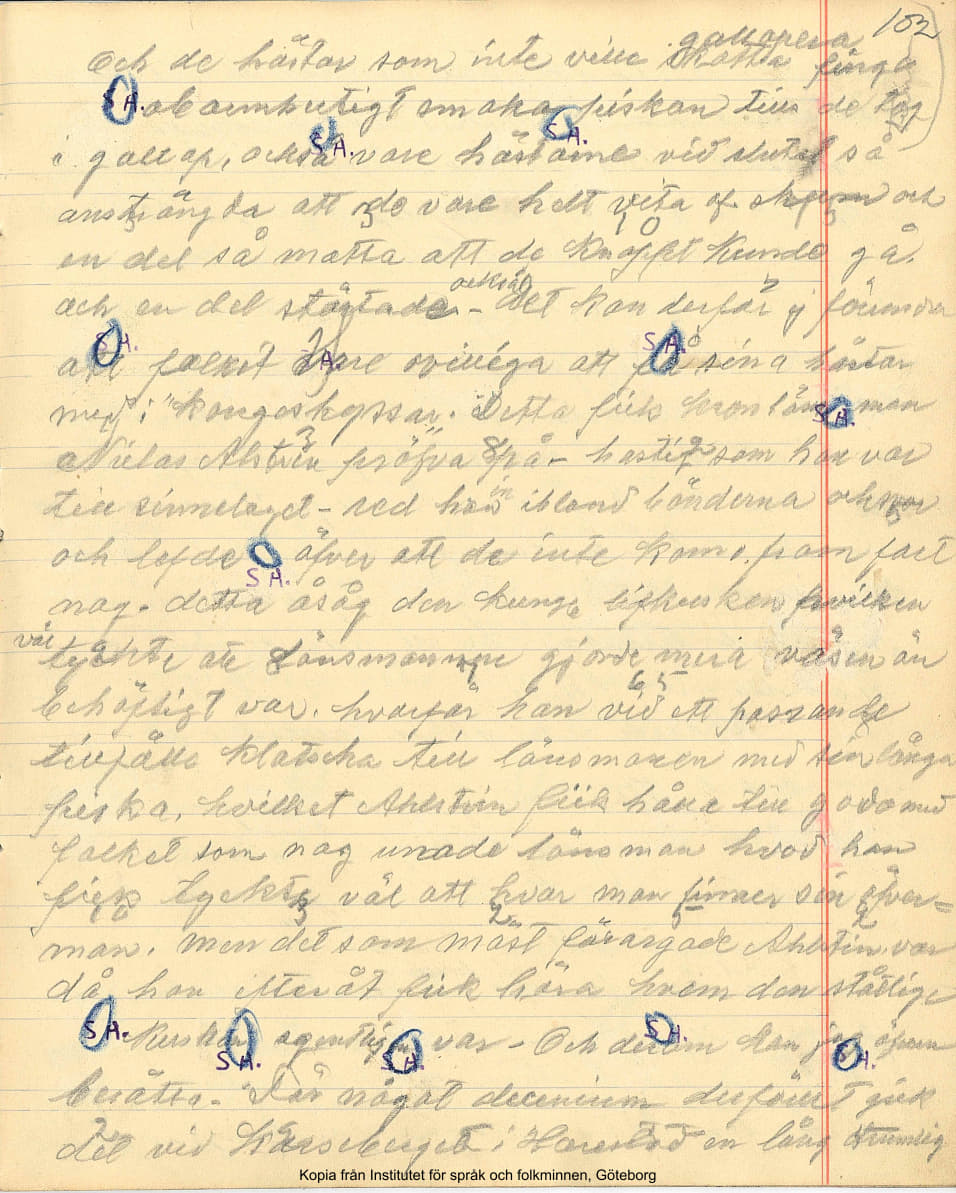 102
galopera
Och de hästar som inte ville skatta finge
S H. obarmhertigt smaka piskan till de tog
S H. S H.
i galop, också vare hästarne vid slutet så
ansträngda att de vare helt vita af skum och
10
en del så matta att de knapt kunde gå.
också
och en del störtade - Det kan derför ej förundra
S H. S H.
att folket vare ovilliga att få sina hästar
S H.
med i "Kongoskjussar". Detta fick kronlänsman
Nielas Ahlström pröfva på - hastig som han var
in
till sinnelaget - red han ibland bönderna och svor
och lefde öfver att de inte komo fram fort
S H.
nog - detta åsåg den kunge lifkusken hvilken
väl
tyckte att Länsmannen gjorde mera väsen än
6 5
behöfligt var. hvarför han vid ett passande
tillfälle klatscha till länsmanen med sin långa
piska, hvilket Ahlström fick hålla till godo med
folket som nog unade länsman hvad han
fick tyckte väl att hvar man finner sin öfver=
man. Men det som mäst förargade Ahlström var
då han efteråt fick höra hvem den ståtlige
S H. S H. S H. S H. S H.
Kusken egentligen var - Och derom kan jag äfven
berätta - För något decenium derförut gick
det vid i Harestad en lång
Kopia från Institutet för språk och folkminnen, Göteborg